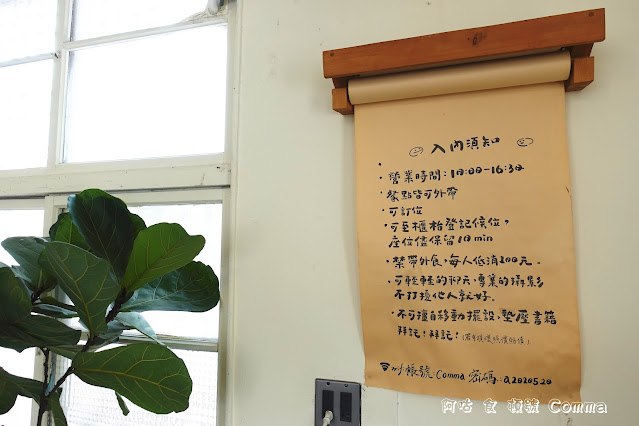 入內須知
· 營業時間：10:00-16:30
· 餐點皆可外帶
· 可訂位
· 可至櫃枱登記候位，
座位僅保留10min
· 禁帶外食，每人低消200元。
· 可輕輕的聊天，專業的攝影
不打擾他人就好。
· 不可擅自移動擺設，墊壓書籍
拜託！拜託！
帳號：Comma 密碼：a2020520
阿咕 食 頓號 Comma